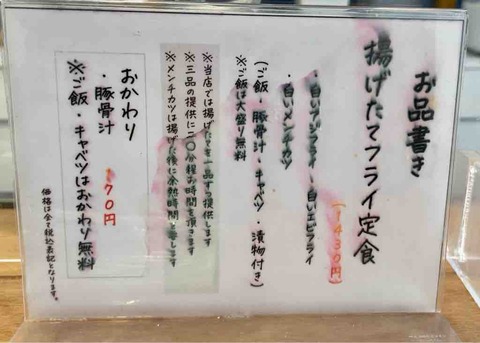 お品書き
揚げたてフライ定食
(1430円)
・白いアジフライ ・白いエビフライ
・白いメンチカツ
(ご飯・豚骨汁・キャベツ・漬物付き)
※ご飯は大盛り無料
※当店では揚げたてを一品ずつ提供します
※三品の提供に二〇分程お時間を頂きます
※メンチカツは揚げた後に余熱時間を要します
おかわり
・豚骨汁 170円
※ご飯・キャベツはおかわり無料
価格は全て税込表記となります。